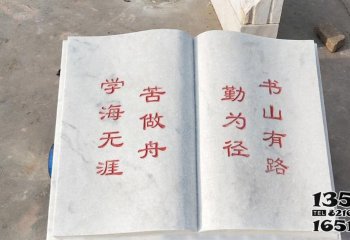 书山有路
勤为径
苦做舟
学海无涯
135
TEL
1651